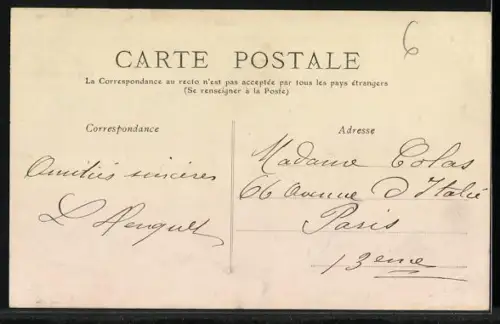 6
CARTE POSTALE
La Correspondance au recto n'est pas acceptée par tous les pays étrangers
(Se renseigner à la Poste)
Correspondance
Adresse
Amitiés sincères
L
Madame Colas
66 Avenue d'Italie
Paris
13eme